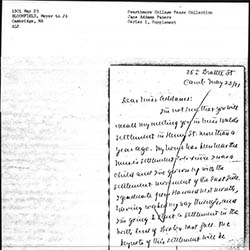 1901 May 23
BLOOMFIELD, Meyer to JA
Cambridge, MA
ALS
Swarthmore College Peace Collection
Jane Addams Papers
Series 1, Supplement
Brattle St
Camb May 23/01
Dear Miss Addams:
I'm not sure that you will
recall my meeting you in Miss Wald's
settlement in Henry St. more than a
year ago. My home has been near the
Nurse's settlement
child and I've grown up with the
settlement movement of the East Side.
I graduate from Harvard next month,
having worked my way through, and
I'm going to
West End of Boston next fall. The
of this settlement will be